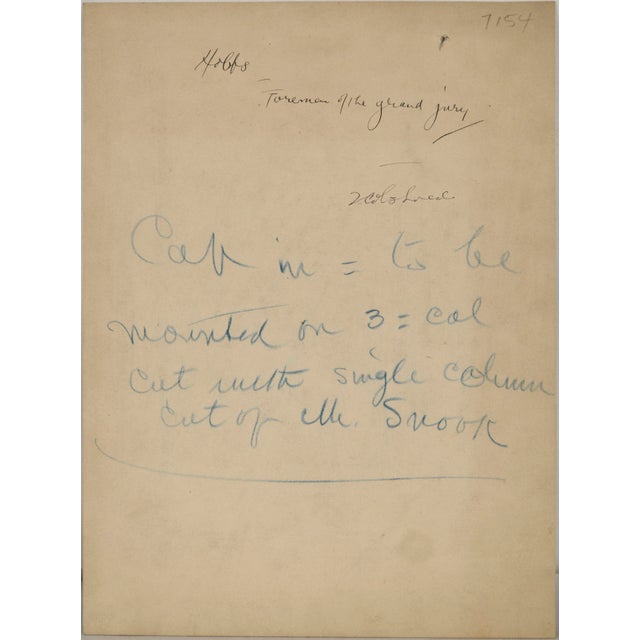 7154
Hobbs
Foreman of the grand jury
Cap in = to be
mounted on 3 = col
cut with single column
cut of Mr. Snook